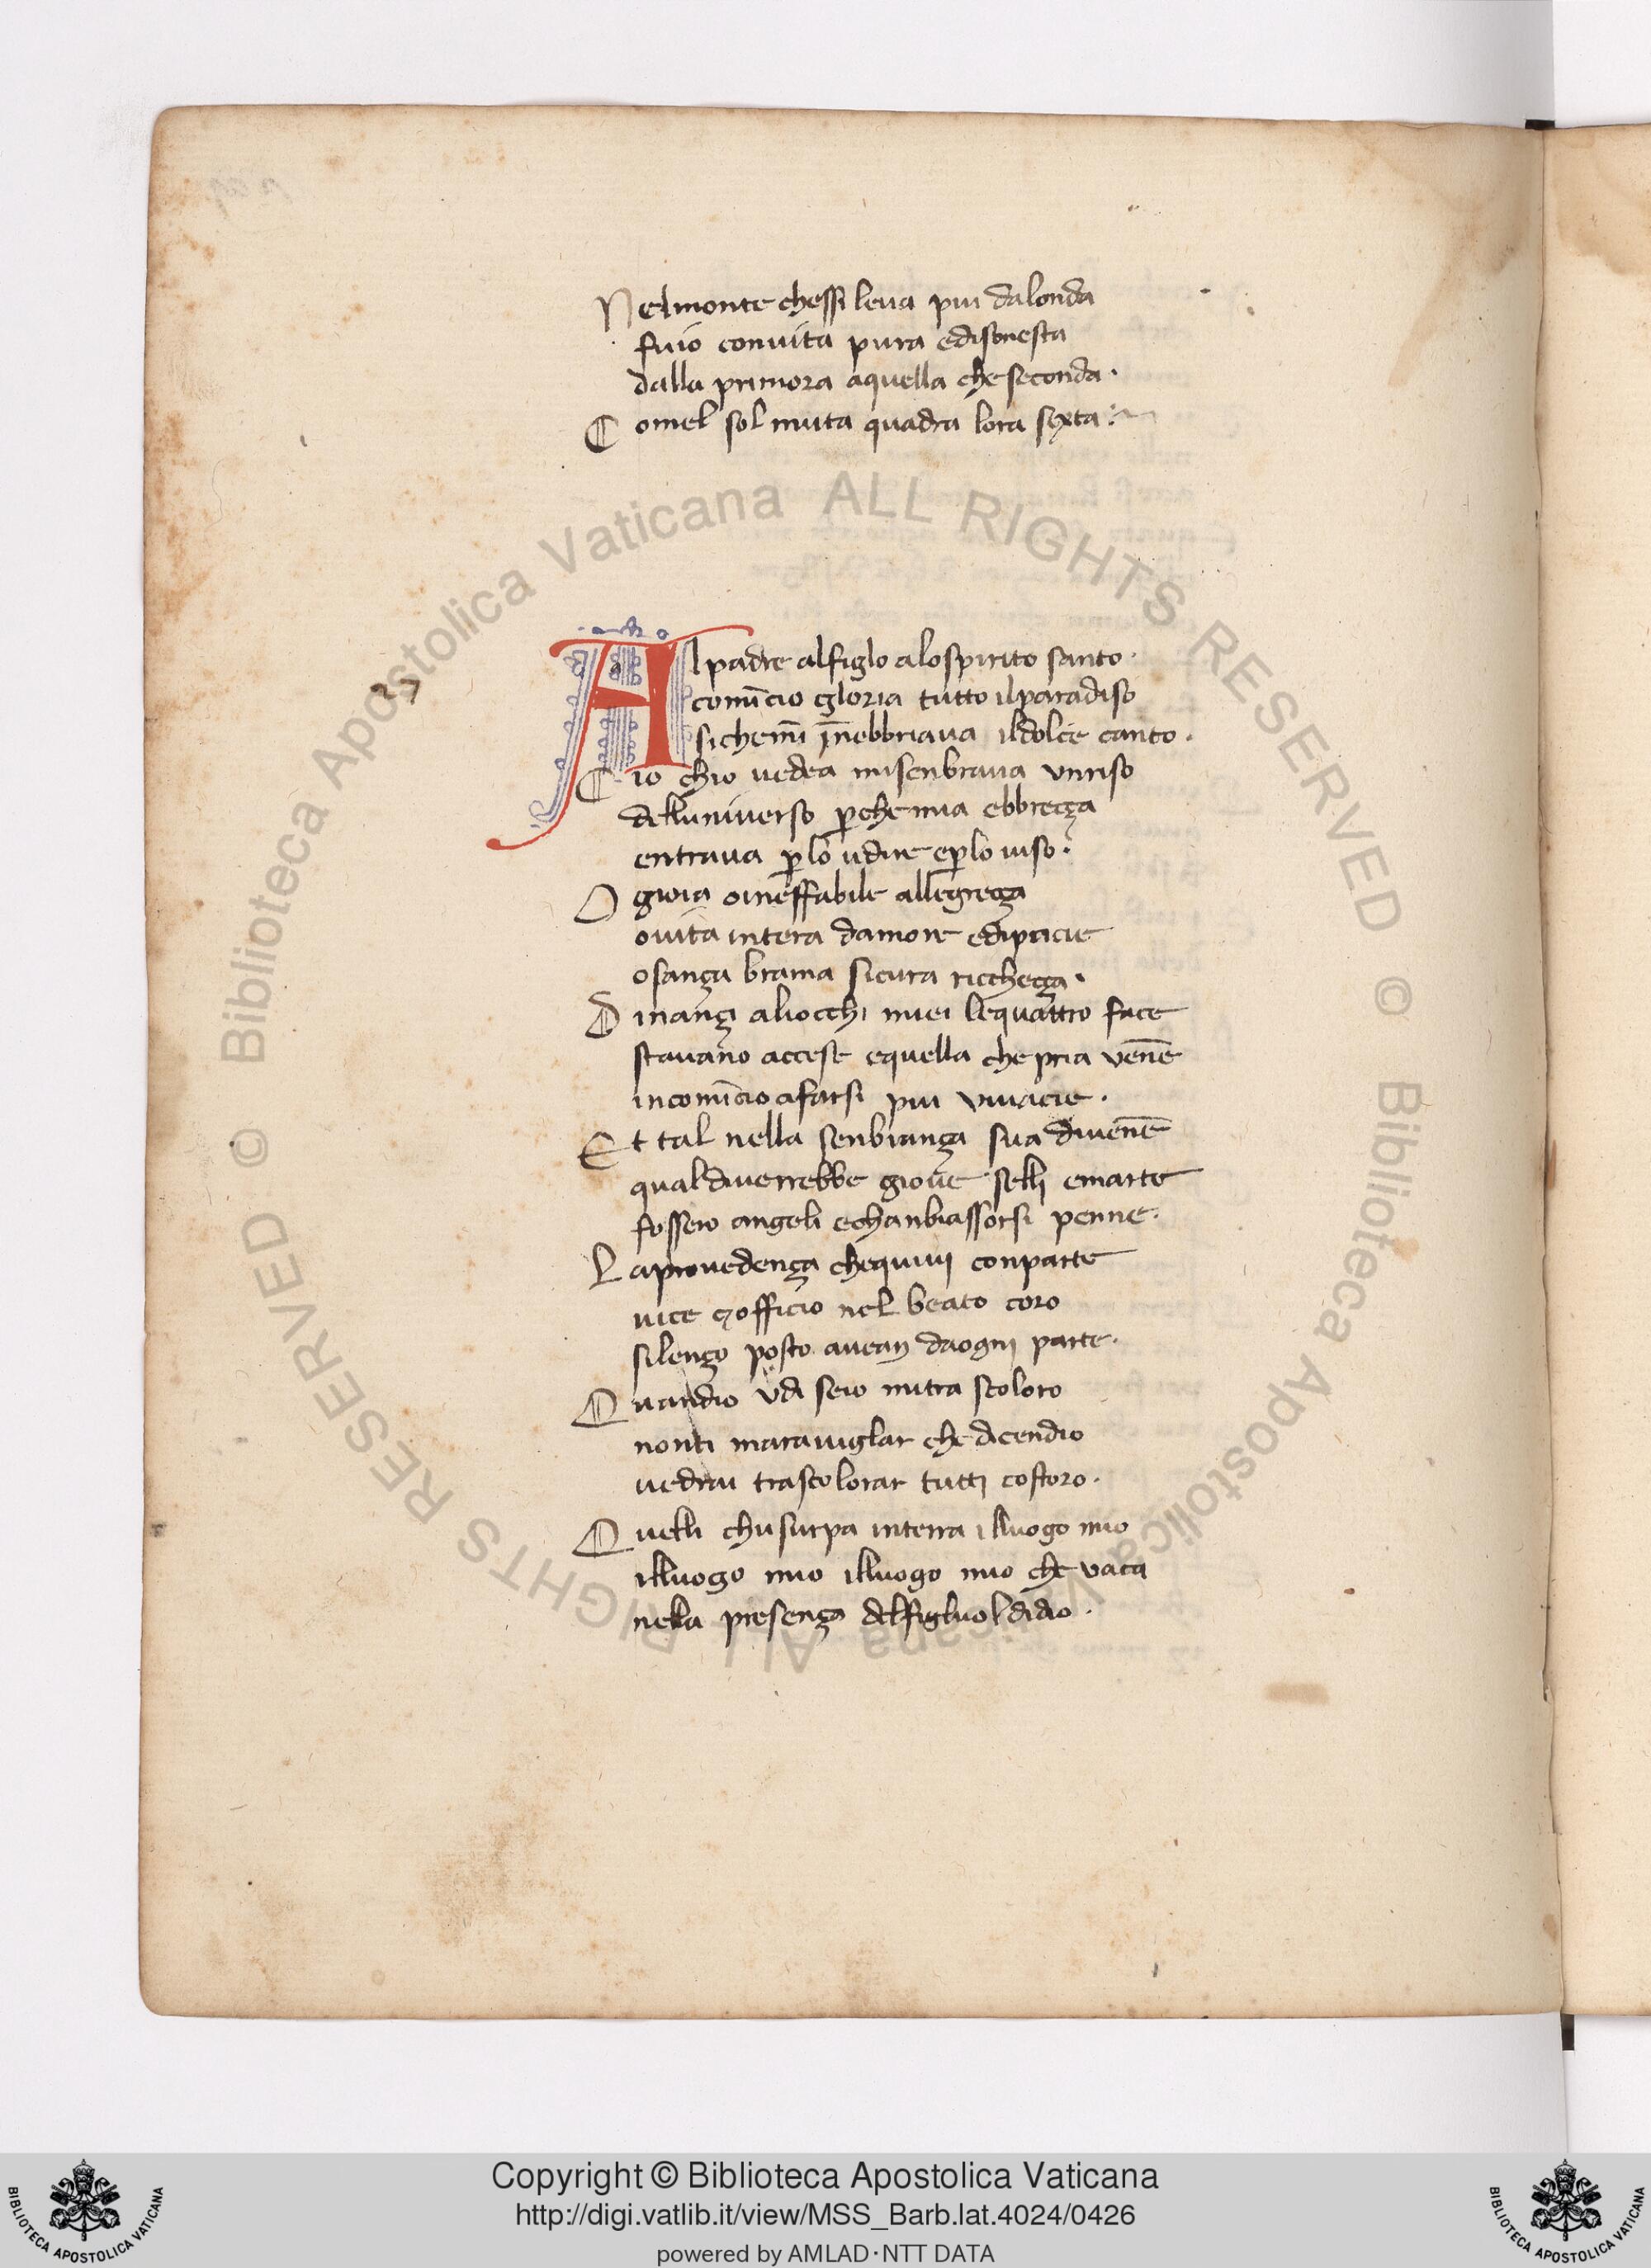 Nelmonte chessi leua piu dalonda
fuio conuita pura edisonesta
dalla primora aquella che seconda.
Comel sol muta quadra lora sexta:
27
Alpadre alfiglo alospirito santo.
comĩcio gloria tutto ilparadiso
sichemĩ ĩnebbriaua ildolce canto.
Cio chio uedea misenbraua vnriso
delluniuerso ꝑche mia ebbreçça
entraua ꝑ lo udire eꝑlo uiso.
O gioia o ineffabile allegreçça
ouita intera damore edipacie
osança brama sicura riccheçça.
Dinançi aliocchi miei lequattro face
stauano accese equella che pria venẽ
incomĩcio afarsi piu viuacie.
Et tal nella senbiança sua diuenẽ
qualdiuerrebbe gioue selli emarte
fossero angeli echanbiassorsi penne.
Laprouedença chequiuj conparte
uice ⁊officio nel beato coro
silenço posto auean daognj parte.
Quandio vdi seio mitra scoloro
nonti marauiglar che dicendio
uedrai trascolorar tuttj costoro.
Quelli chusurpa interra illuogo mio
illuogo mio illuogo mio che vaca
nella presença delfigluol didio.
© Biblioteca Apostolica Vaticana ALL RIGHTS RESERVED © Biblioteca Apostolica Vaticana ALL RIGHTS RESERVED
Copyright © Biblioteca Apostolica Vaticana
http://digi.vatlib.it/view/MSS_Barb.lat.4024/0426
powered by AMLAD·NTT DATA
BIBLIOTECA APOSTOLICA VATICANA
BIBLIOTECA APOSTOLICA VATICANA